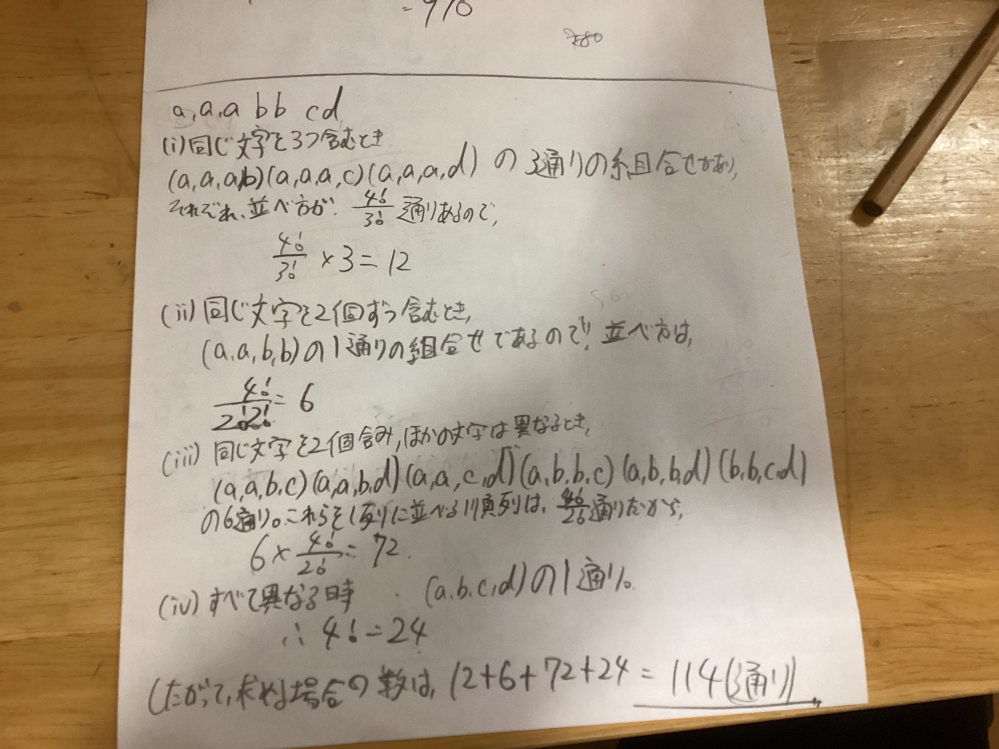 = 970
a,a,a bb cd
(i)同じ文字を3つ含むとき
(a,a,a,b)(a,a,a,c)(a,a,a,d) の 3通りの組合せがあり,
それぞれ、並べ方が、4!/3! 通りあるので,
4!/3! × 3 = 12
(ii)同じ文字を2個ずつ含むとき,
(a,a,b,b)の1通りの組合せであるので、並べ方は,
4!/2!2! = 6
(iii) 同じ文字を2個含み,ほかの文字は異なるとき,
(a,a,b,c)(a,a,b,d)(a,a,c,d)(a,b,b,c)(a,b,b,d)(b,b,c,d)
の6通り。これらを1列に並べる順列は、4!/2!通りだから,
6 × 4!/2! = 72.
(iv)すべて異なる時 (a,b,c,d)の1通り。
∴ 4! = 24
したがって,求める場合の数は, 12+6+72+24 = 114(通り)